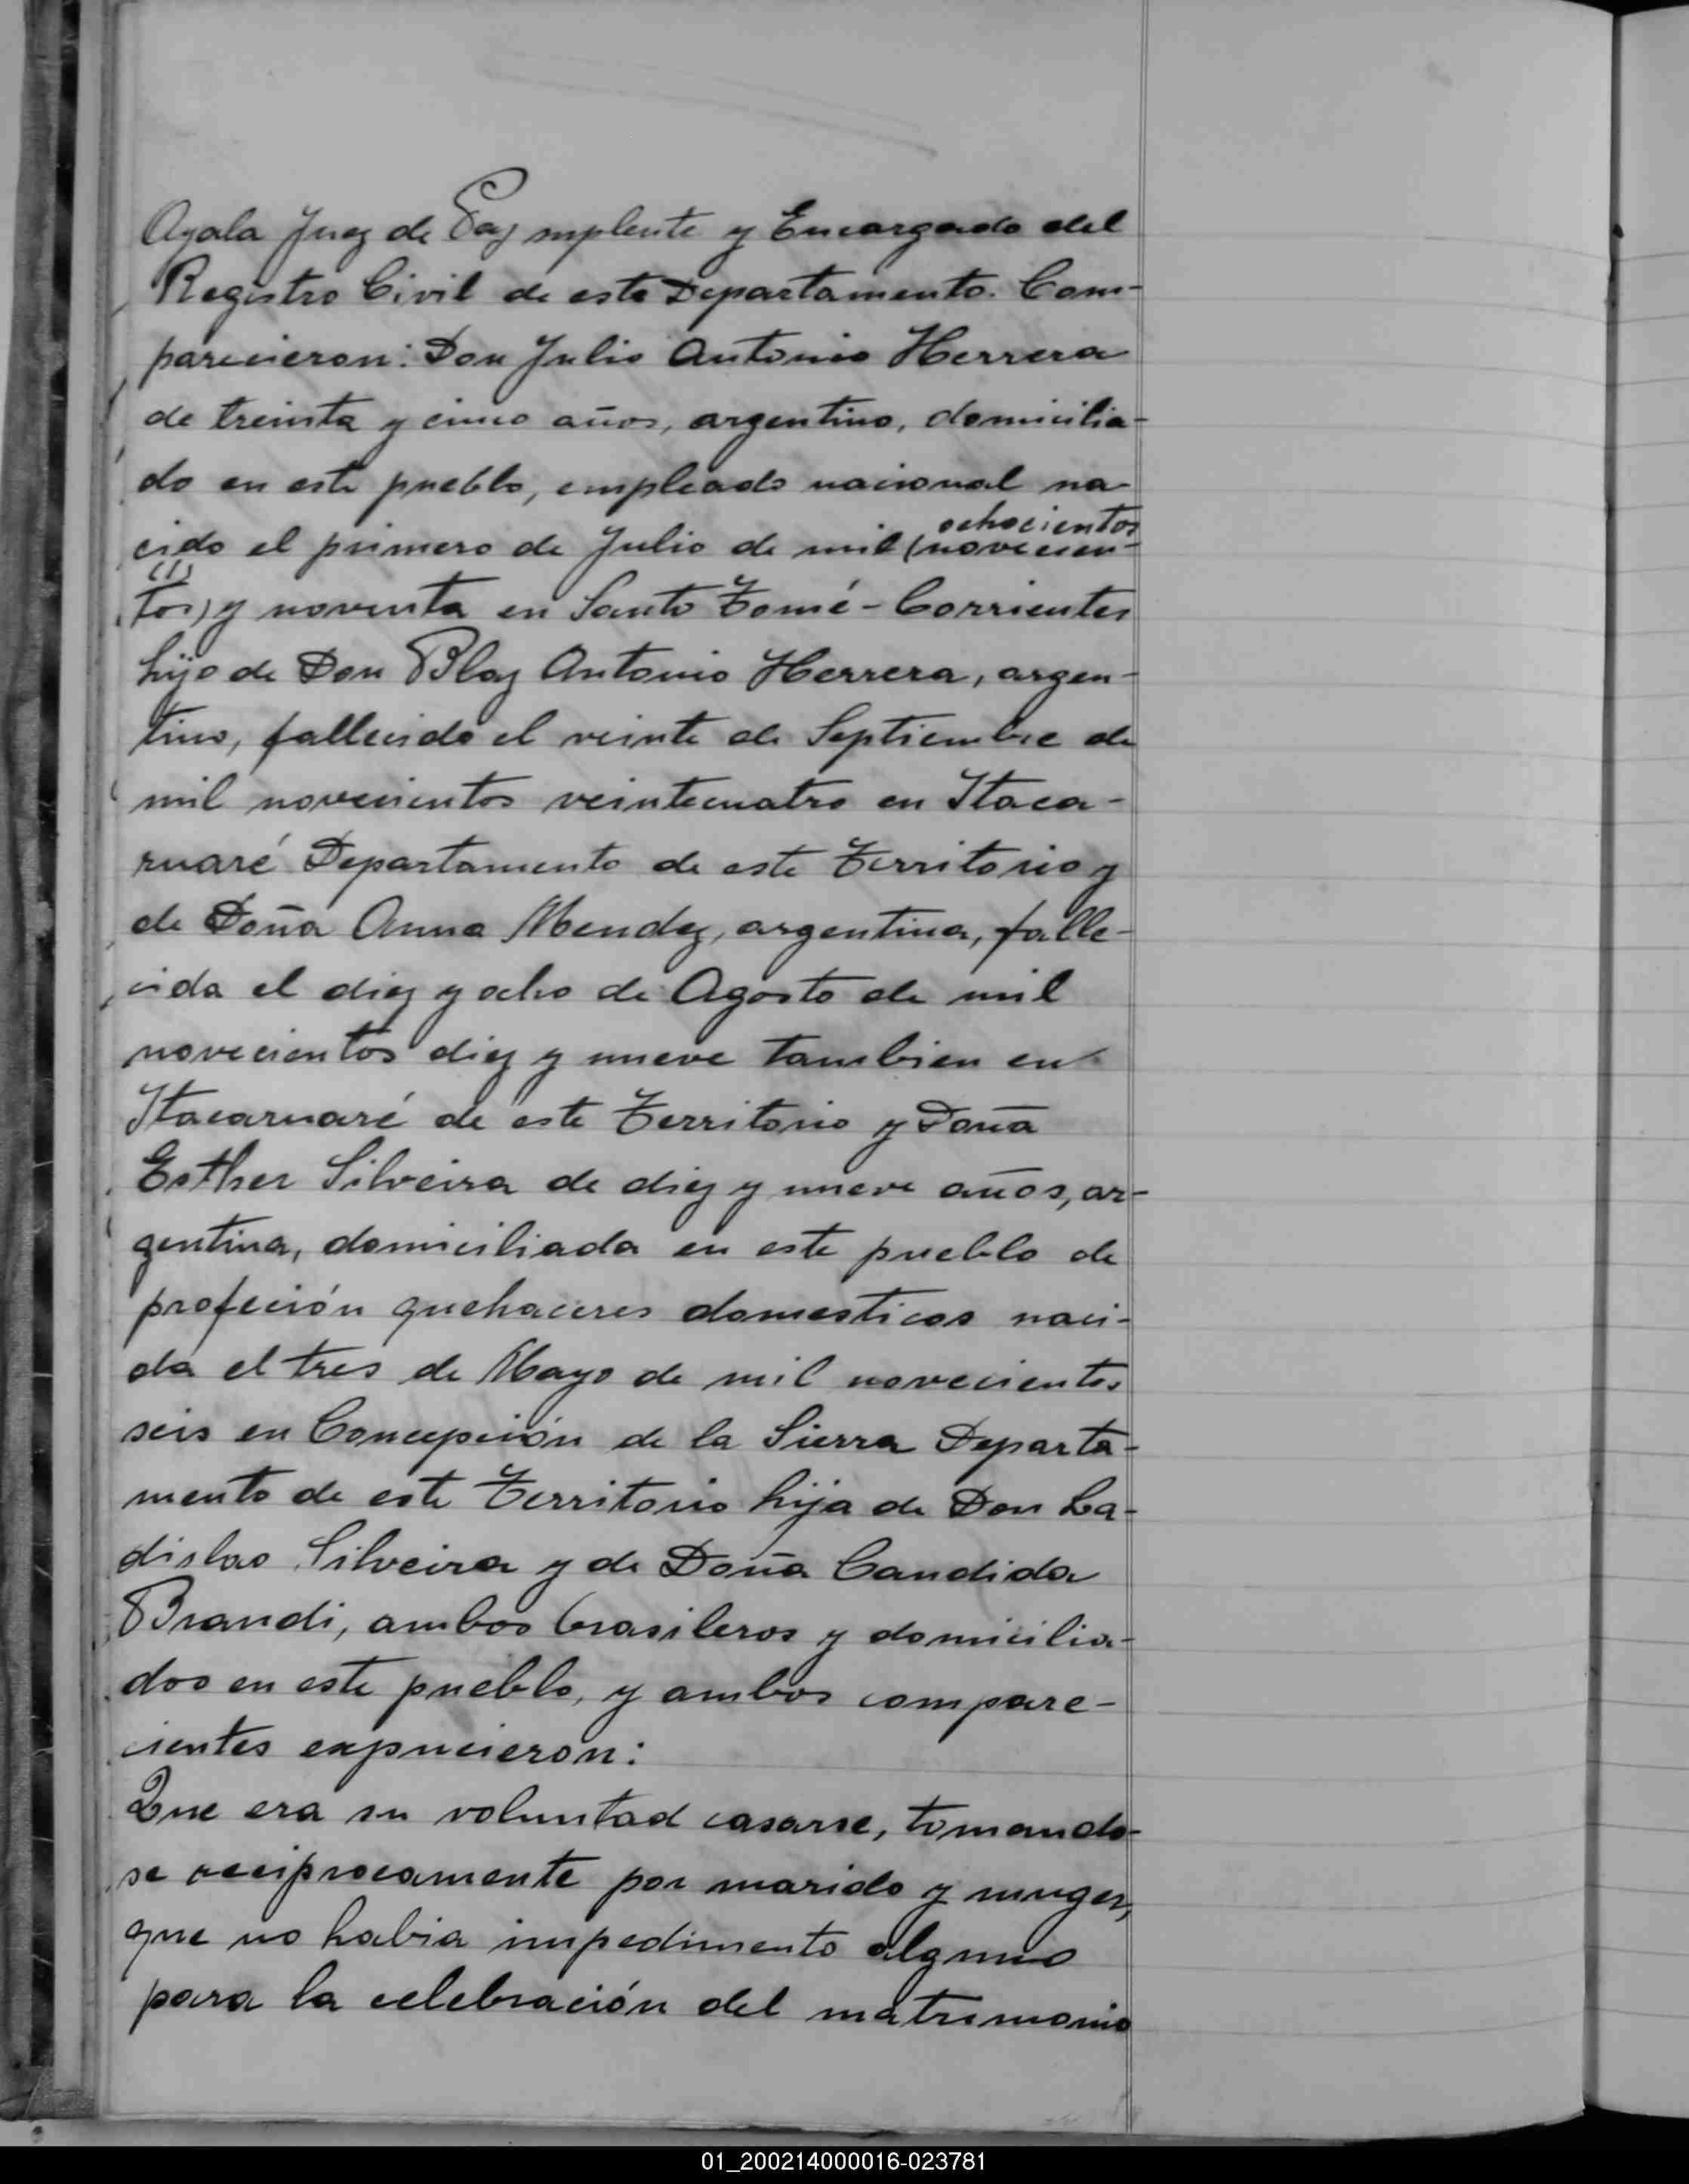 Ayala Juez de Paz suplente y Encargado del
Registro Civil de este Departamento. Com-
parecieron: Don Julio Antonio Herrera
de treinta y cinco años, argentino, domicilia-
do en este pueblo, empleado nacional na-
ochocientos
cido el primero de Julio de mil (novecien-
(1)
tos) y noventa en Santo Tomé - Corrientes
hijo de Don Blaz Antonio Herrera, argen-
tino, fallecido el veinte de Septiembre de
mil novecientos veintecuatro en Itaca-
ruaré Departamento de este Territorio y
de Doña Anna Mendez, argentina, falle-
cida el diez y ocho de Agosto de mil
novecientos diez y nueve tambien en
Itacaruaré de este Territorio y Doña
Esther Silveira de diez y nueve años, ar-
gentina, domiciliada en este pueblo de
profeción quehaceres domesticos naci-
da el tres de Mayo de mil novecientos
seis en Concepción de la Sierra Departa-
mento de este Territorio hija de Don La-
dislao Silveira y de Doña Candida
Brandi, ambos brasileros y domicilia-
dos en este pueblo, y ambos compare-
cientes expucieron:
Que era su voluntad casarse, tomando-
se reciprocamente por marido y muger,
que no habia impedimento alguno
para la celebración del matrimonio
01_200214000016-023781